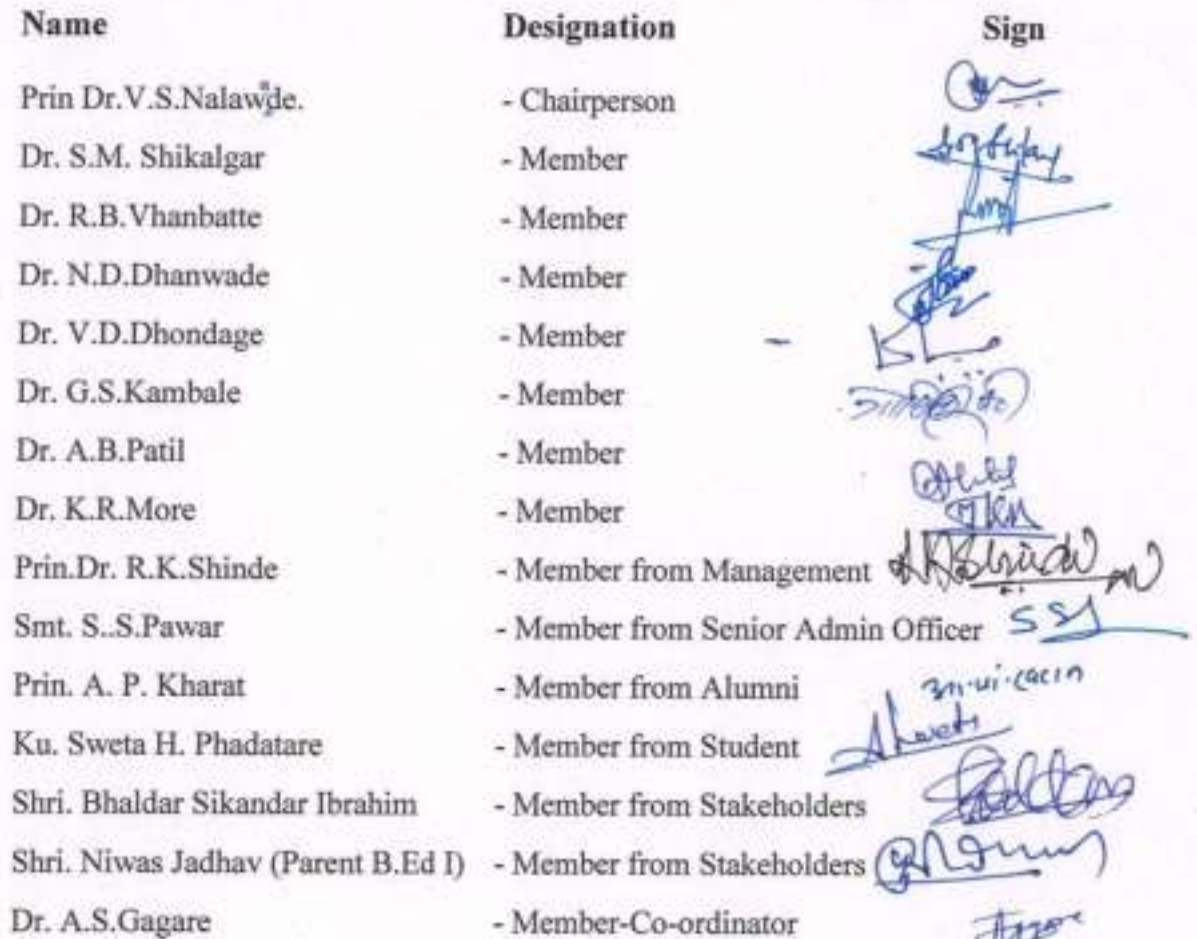 Name Designation Sign
Prin Dr.V.S.Nalawde. - Chairperson
Dr. S.M. Shikalgar - Member
Dr. R.B.Vhanbatte - Member
Dr. N.D.Dhanwade - Member
Dr. V.D.Dhondage - Member -
Dr. G.S.Kambale - Member
Dr. A.B.Patil - Member
Dr. K.R.More - Member
Prin.Dr. R.K.Shinde - Member from Management
Smt. S..S.Pawar - Member from Senior Admin Officer
Prin. A. P. Kharat - Member from Alumni
Ku. Sweta H. Phadatare - Member from Student
Shri. Bhaldar Sikandar Ibrahim - Member from Stakeholders
Shri. Niwas Jadhav (Parent B.Ed I) - Member from Stakeholders
Dr. A.S.Gagare - Member-Co-ordinator